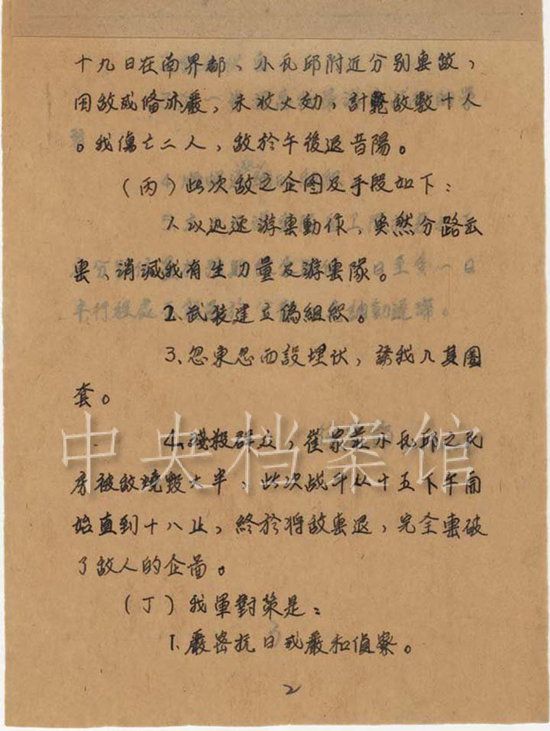 十九日在南界都、水瓦邱附近分别击敌，
因敌戒备亦严，未收大効，計斃敌数十人
。我傷亡二人，敌於午後退昔陽。
（丙）此次敌之企图及手段如下：
1.以迅速游击動作，突然分路出
击、消滅我有生力量及游击隊。
2.武装建立偽組织。
3.忽東忽西設埋伏，誘我入其圈
套。
4.殘殺群众，崔家 水瓦邱之民
房被敌燒毁大半，此次战斗从十五下午開
始直到十八止，終於将敌击退，完全击破
了敌人的企啚。
（丁）我軍對策是：
1.嚴密抗日戒嚴和偵察。
2
中央档案馆